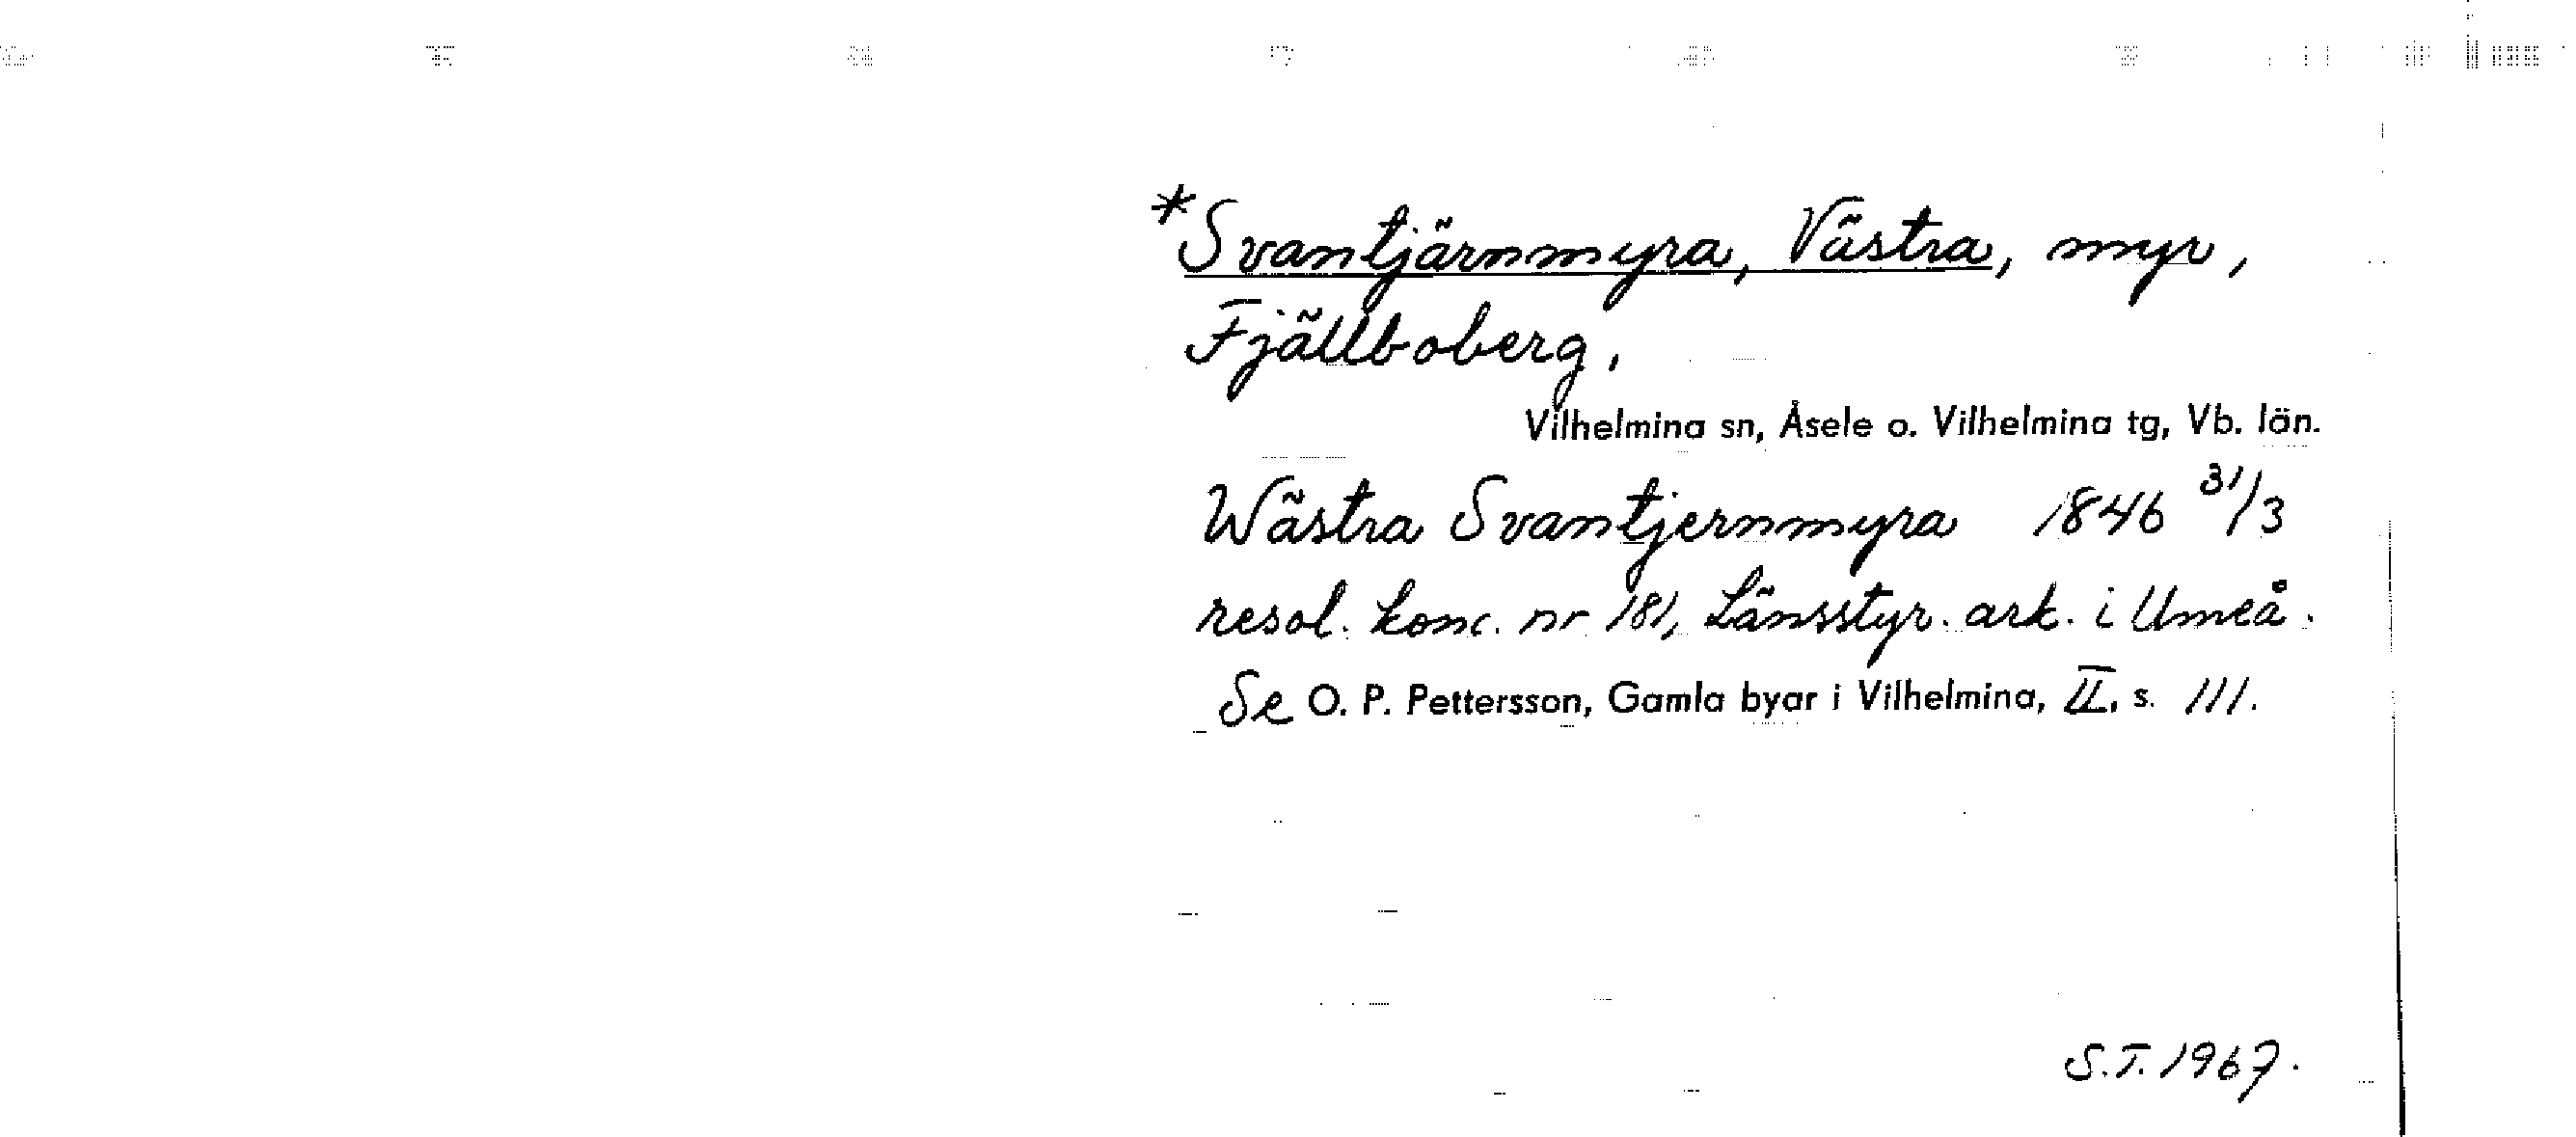 *Svantjärnmyra, Västra, myr,
Fjällboberg,
Vilhelmina sn, Åsele o. Vilhelmina tg, Vb. län.
Wästra Svantjernmyra 1846 31/3
resol. konc. nr 181, Länsstyr. ark. i Umeå.
Se O. P. Pettersson, Gamla byar i Vilhelmina, II, s. 111.
S.T. 1967.